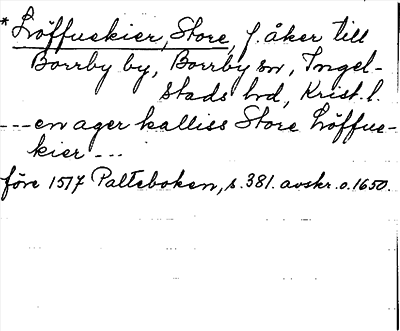 *Löffuekier, Store, f. åker till
Borrby by, Borrby sn, Ingel-
stads hd, Krist. l.
---en ager kalliss Store Löffue-
kier---
före 1517 Palteboken, s. 381. avskr. o. 1650.